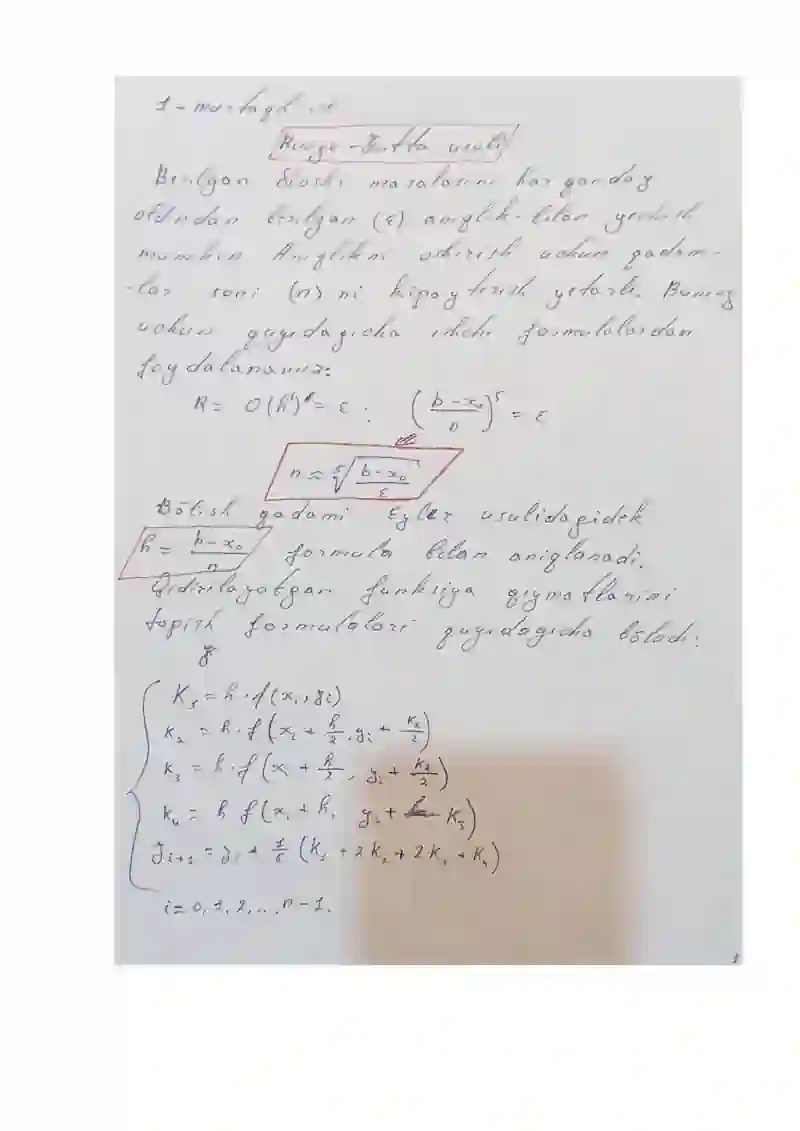 1 - mustaqil ish
Runge - Kutta usuli
Berilgan Koshi masalasini har qanday
oldindan berilgan (ε) aniqlik bilan yechish
mumkin Aniqlikni oshirish uchun qadam-
-lar soni (n) ni kópaytirish yetarli. Buning
uchun quyidagicha ichki formulalardan
foydalanamiz:
R = O(h)⁵ = ε ; ((b - x₀)/n)⁵ = ε
n ≈ ⁵√((b - x₀)/ε)
Bólish qadami Eyler usulidagidek
h = (b - x₀)/n formula bilan aniqlanadi.
Qidirilayotgan funksiya qiymatlarini
topish formulalari quyidagicha bóladi:
K₁ = h · f(xᵢ, yᵢ)
K₂ = h · f(xᵢ + h/2, yᵢ + K₁/2)
K₃ = h · f(xᵢ + h/2, yᵢ + K₂/2)
K₄ = h f(xᵢ + h, yᵢ + K₃)
yᵢ₊₁ = yᵢ + 1/6 (K₁ + 2K₂ + 2K₃ + K₄)
i = 0, 1, 2, ..., n - 1.
1